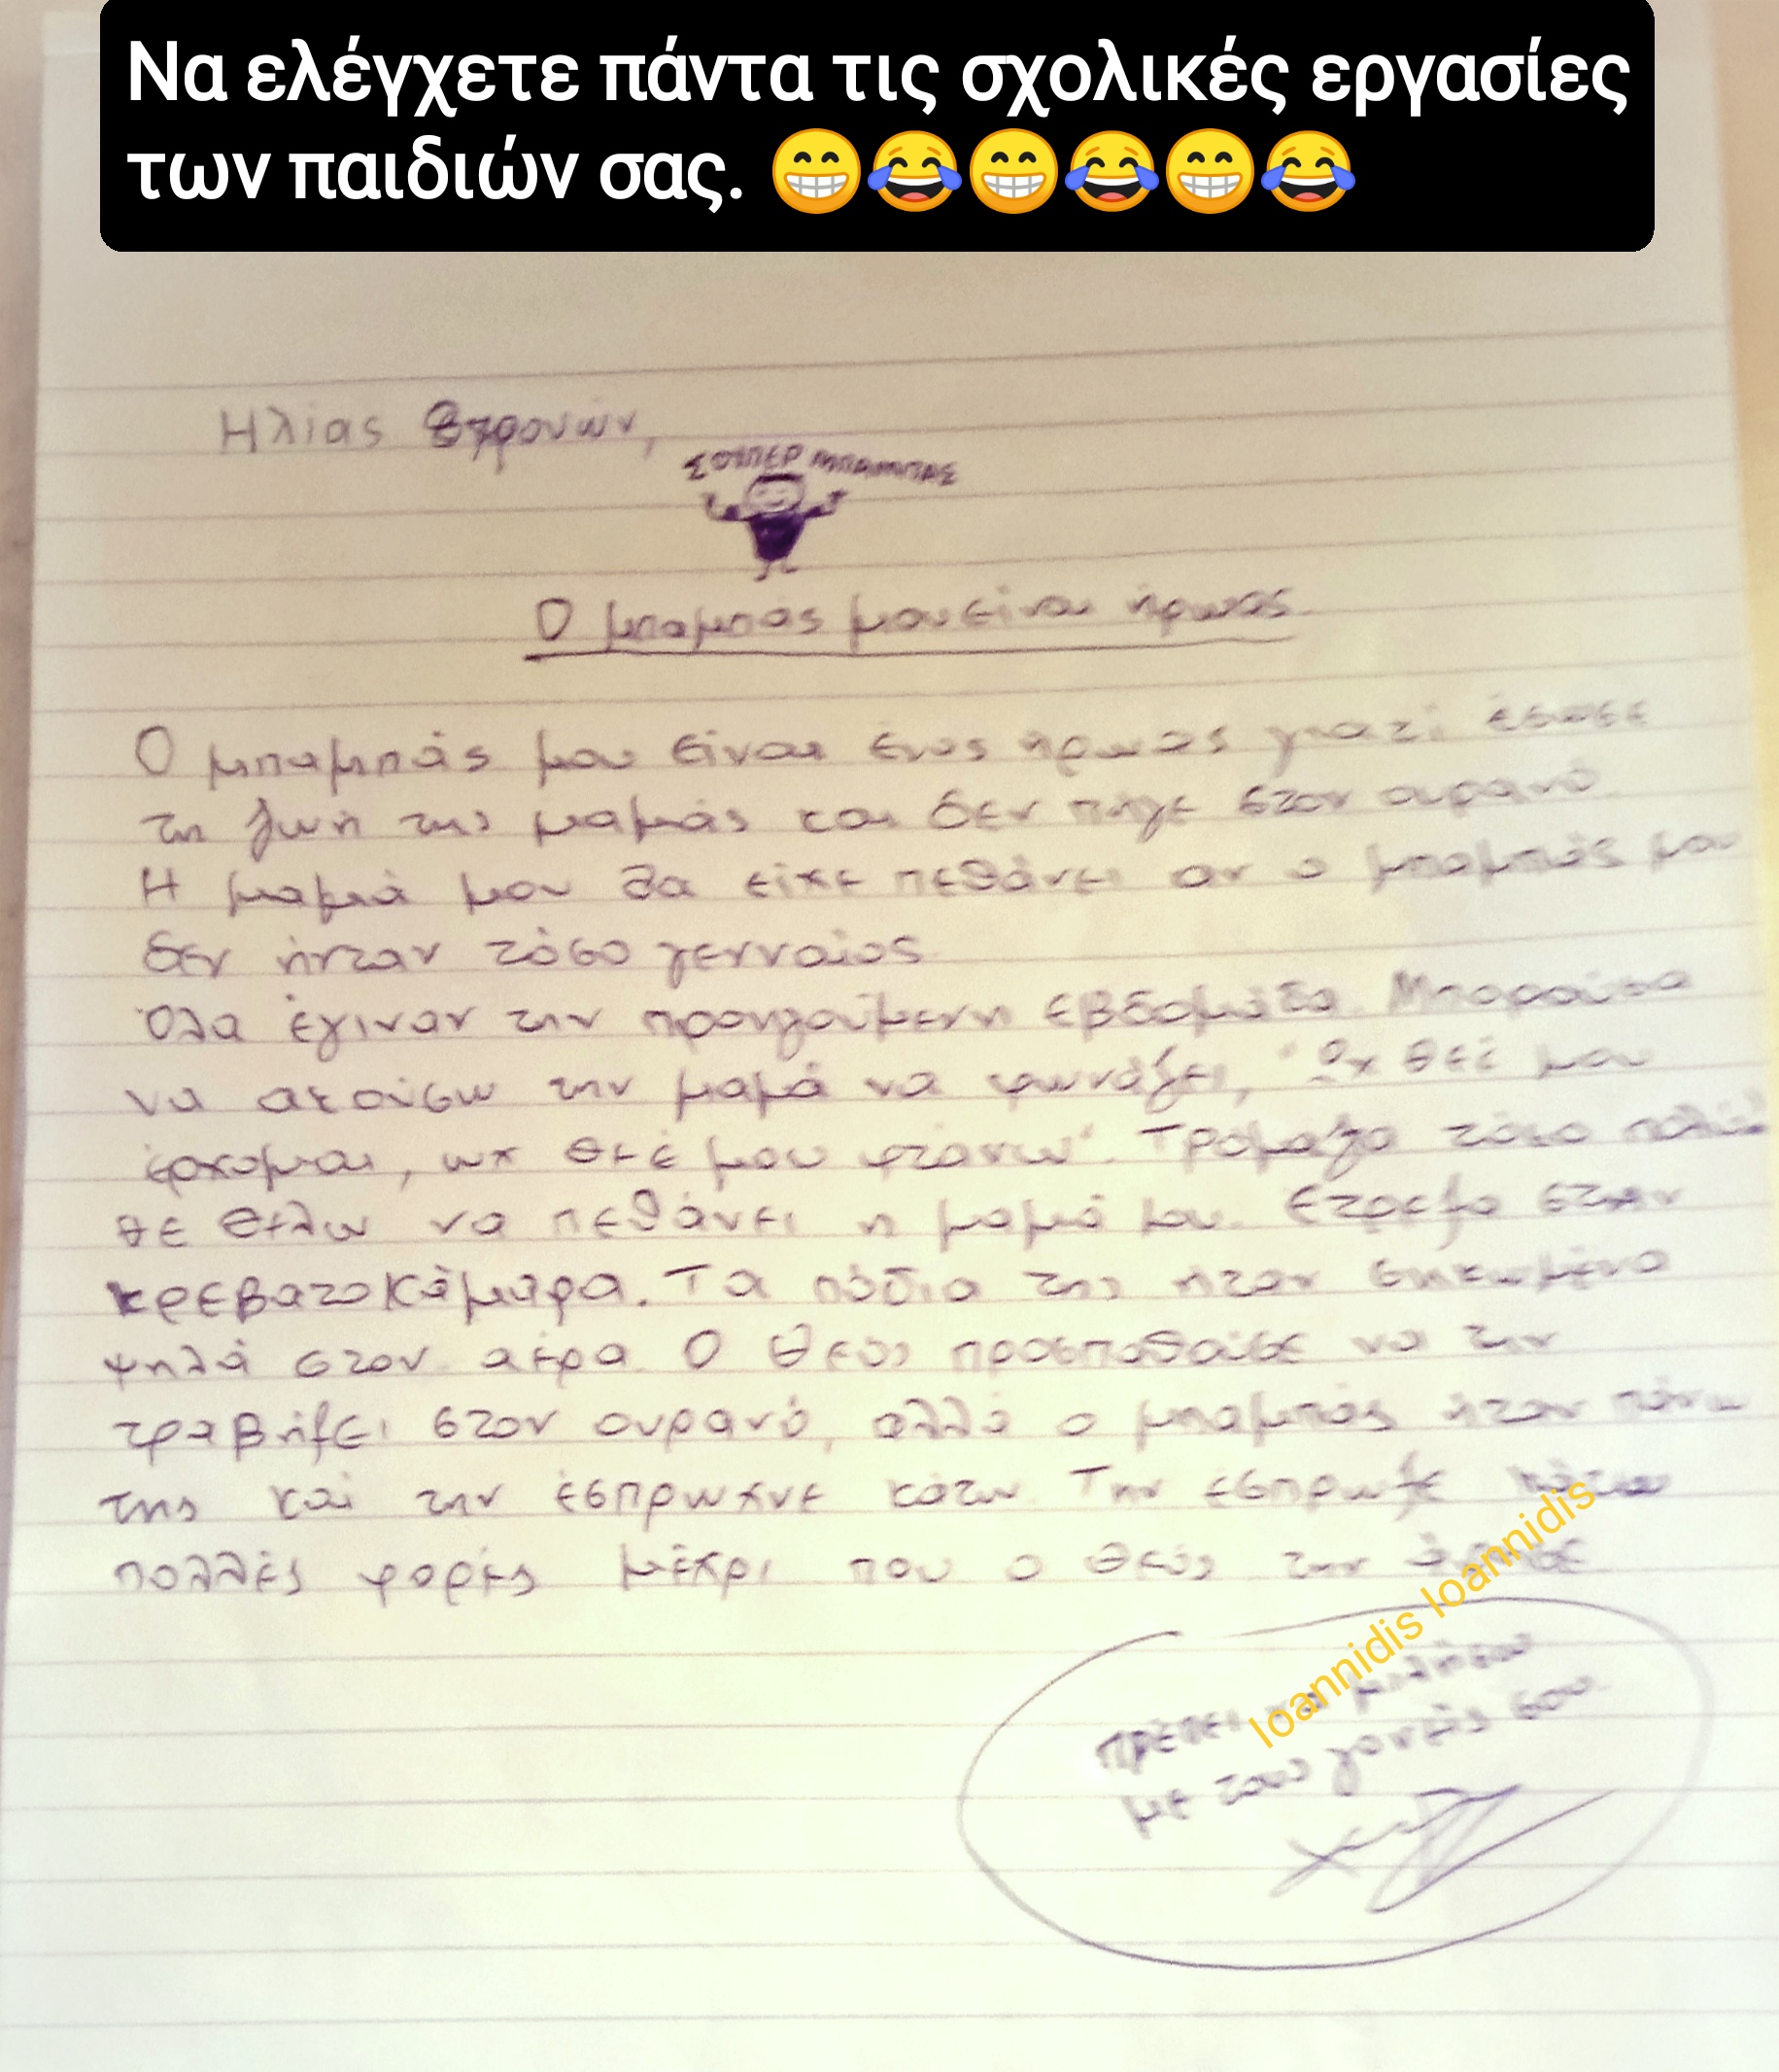 Να ελέγχετε πάντα τις σχολικές εργασίες
των παιδιών σας. 😁😂😁😂😁😂
Ηλίας 8 χρονών,
ΣΟΥΠΕΡ ΜΠΑΜΠΑΣ
Ο μπαμπάς μου είναι ήρωας
Ο μπαμπάς μου είναι ένας ήρωας γιατί έσωσε
τη ζωή της μαμάς και δεν πήγε στον ουρανό.
Η μαμά μου θα είχε πεθάνει αν ο μπαμπάς μου
δεν ήνταν τόσο γενναίος.
Όλα έγιναν την προηγούμενη εβδομάδα. Μπορούσα
να ακούσω την μαμά να φωνάζει, "Ωχ θεέ μου
έρχομαι, ωχ θεέ μου φτάνω". Τρόμαξα τόσο πολύ
θέλω να πεθάνει η μαμά μου. Ετρεξα στην
κρεβατοκάμαρα. Τα πόδια της ήταν σηκωμένα
ψηλά στον αέρα. Ο θεός προσπαθούσε να την
τραβήξει στον ουρανό, αλλά ο μπαμπάς ήταν πάνω
της και την έσπρωχνε κάτω. Την έσπρωξε κάτω
πολλές φορές μέχρι που ο θεός την άφησε
Πρέπει να μιλήσω
με τους γονείς σου.
Ioannidis Ioannidis